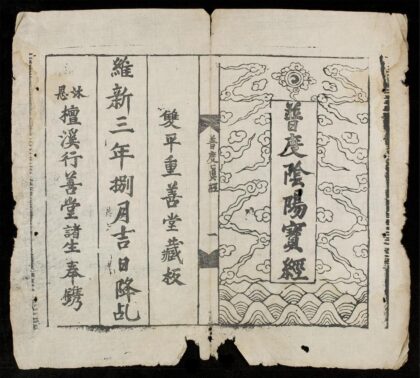 普度陰陽寶經
普度眞經 一
雙平重善堂藏板
維新三年捌月吉日降乩
沐恩 檀溪行善堂諸生奉鐫